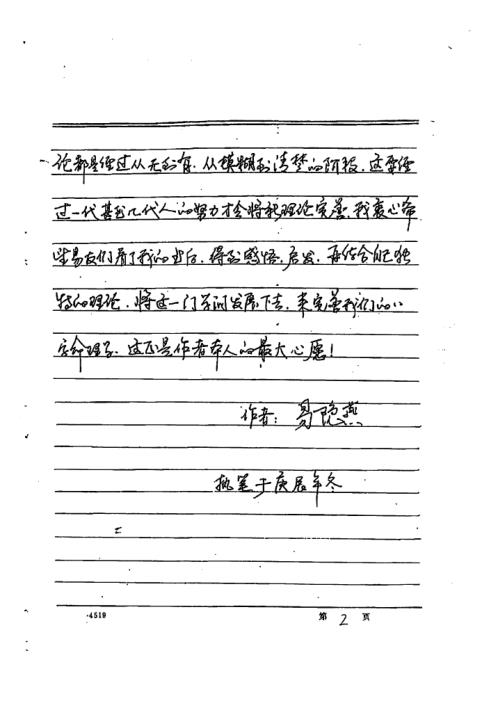 论都是经过从无到有、从模糊到清楚的阶段，这要经
过一代甚至几代人的努力才会将新理论完善，我衷心希
望易友们看了我的书后，得到感悟，启发，再结合自己独
特的理论，将这一门学问发展下去，来完善我们的八
字命理学，这正是作者本人的最大心愿！
作者：易隐燕
执笔于庚辰年冬
4519 第 2 页